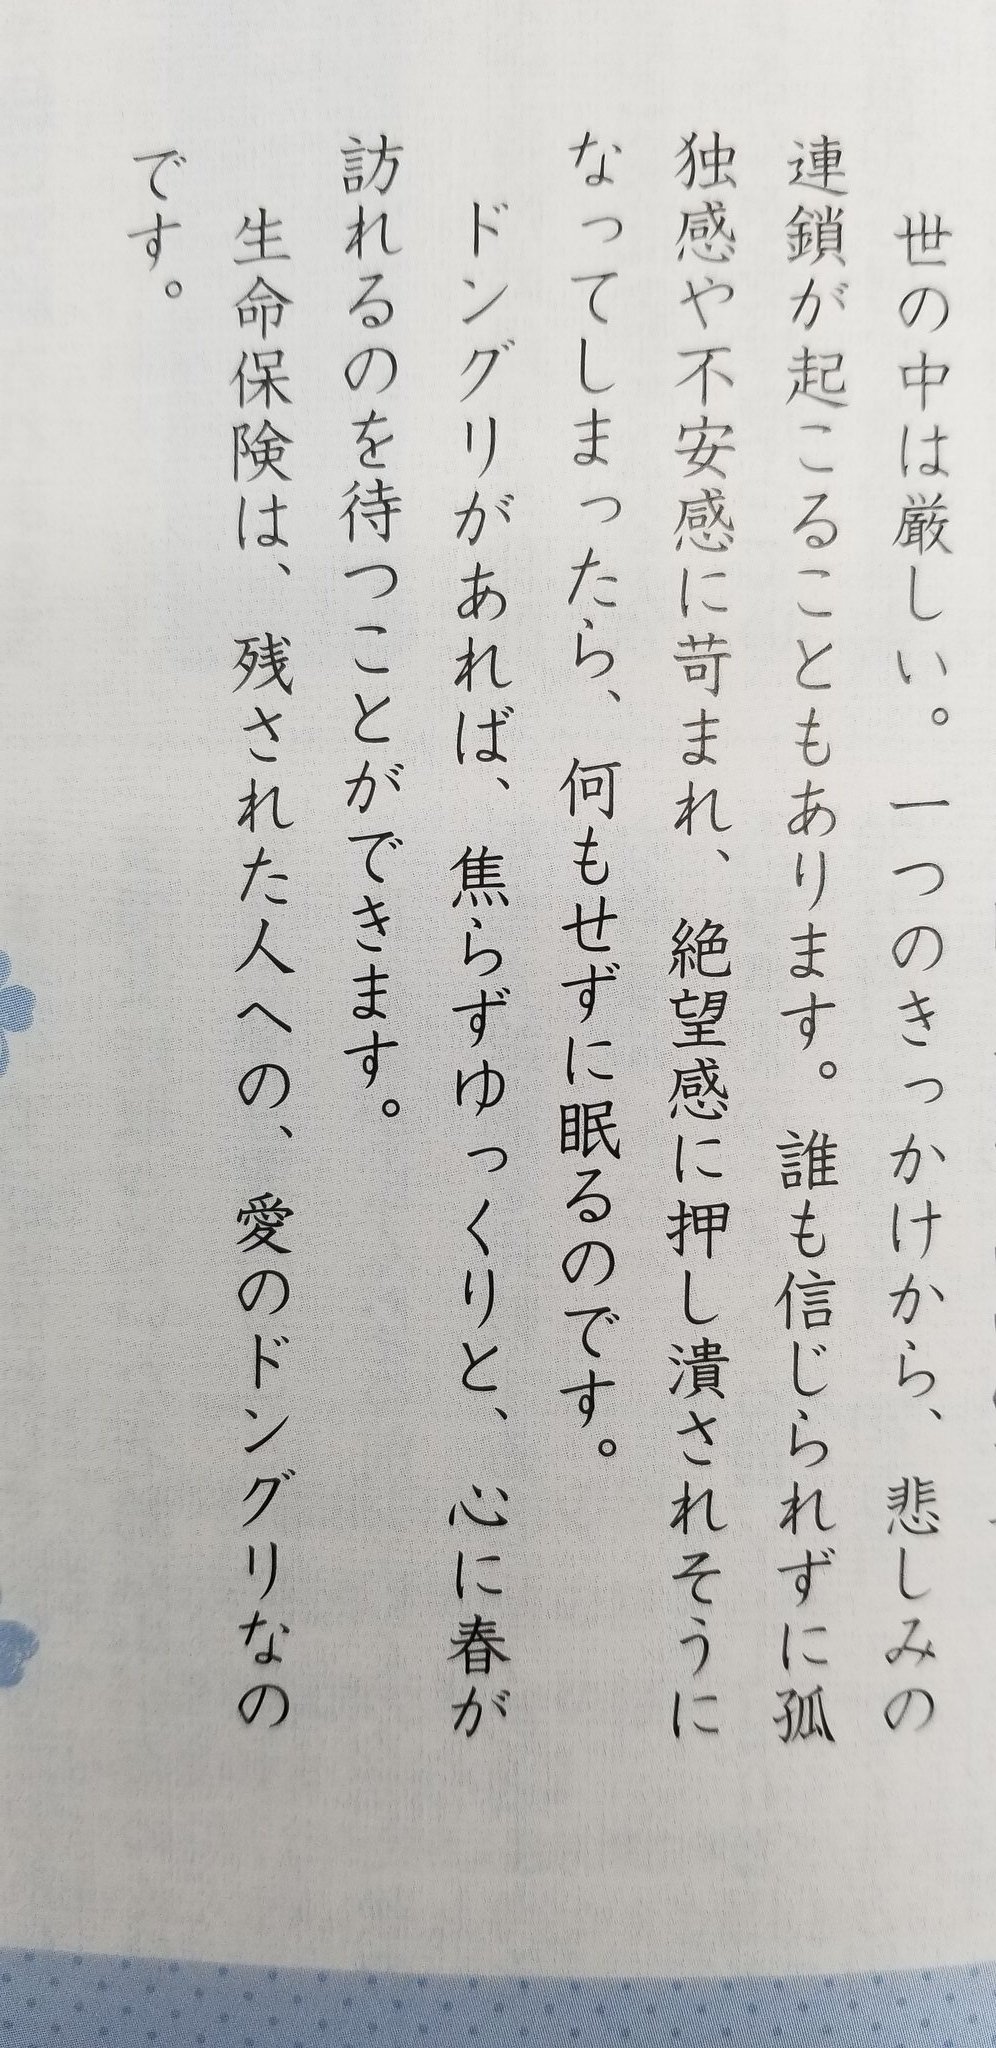 世の中は厳しい。一つのきっかけから、悲しみの
連鎖が起こることもあります。誰も信じられずに孤
独感や不安感に苛まれ、絶望感に押し潰されそうに
なってしまったら、何もせずに眠るのです。
ドングリがあれば、焦らずゆっくりと、心に春が
訪れるのを待つことができます。
生命保険は、残された人への、愛のドングリなの
です。